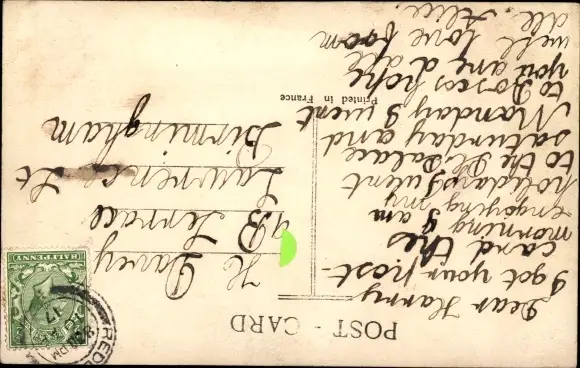 POST - CARD
Dear Harry
I got your post-
card this
morning I am
enjoying my
holidays I went
to the P. Palace
saturday and
Monday I went
to Boscos hope
you are all
well love from
all. Alice.
Printed in France
H Davey
9B Terrace
Lawrence St
Birmingham
HALFPENNY
REDD
8 PM
17